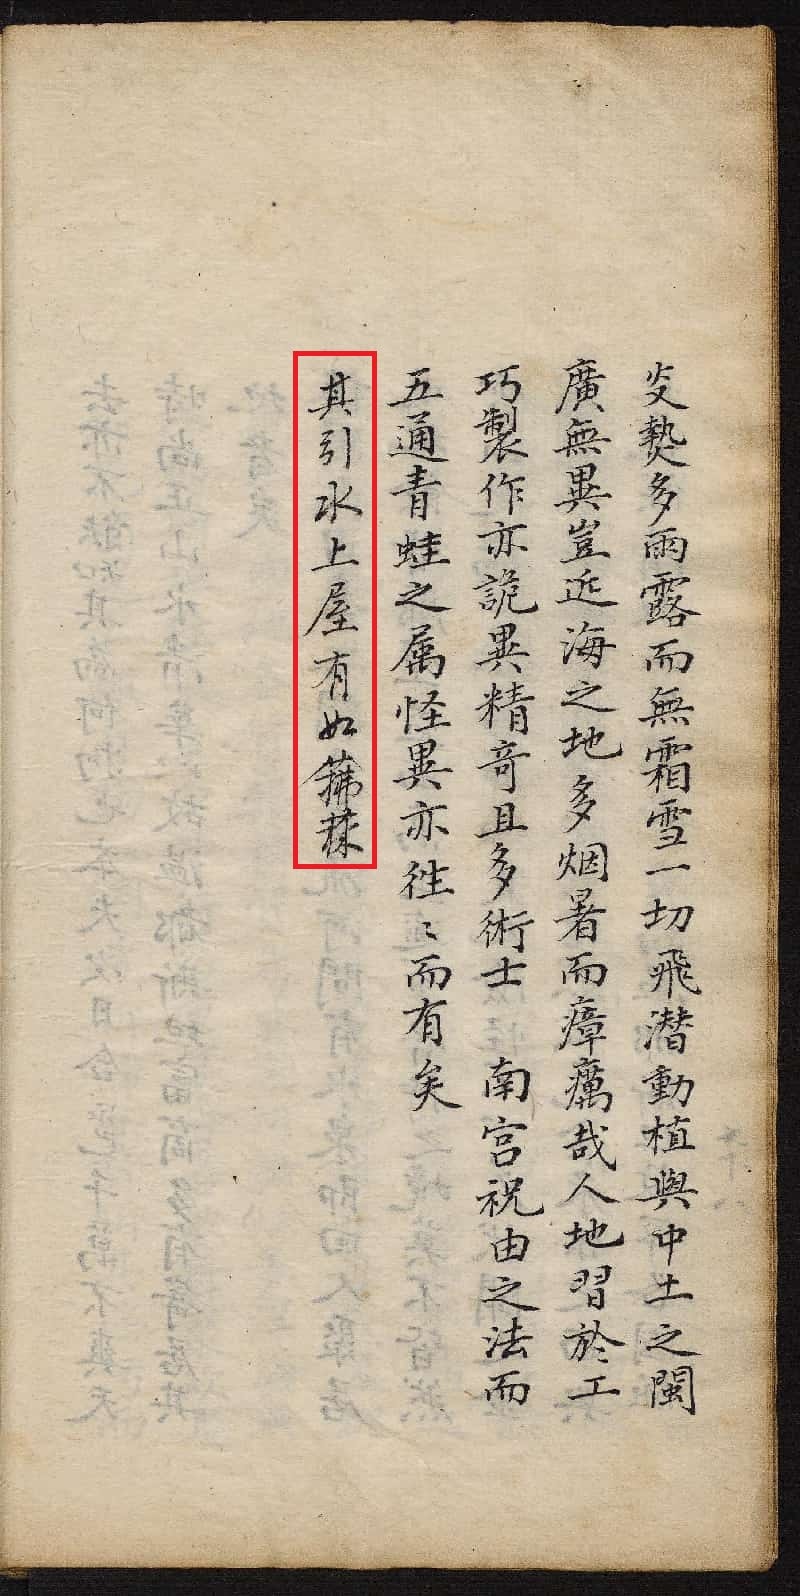 炎熱多雨露而無霜雪一切飛潛動植與中土之閩
廣無異豈近海之地多烟暑而瘴癘哉人地習於工
巧製作亦詭異精奇且多術士　南宮祝由之法而
五通青蛙之属怪異亦徃〻而有矣
其引水上屋有如